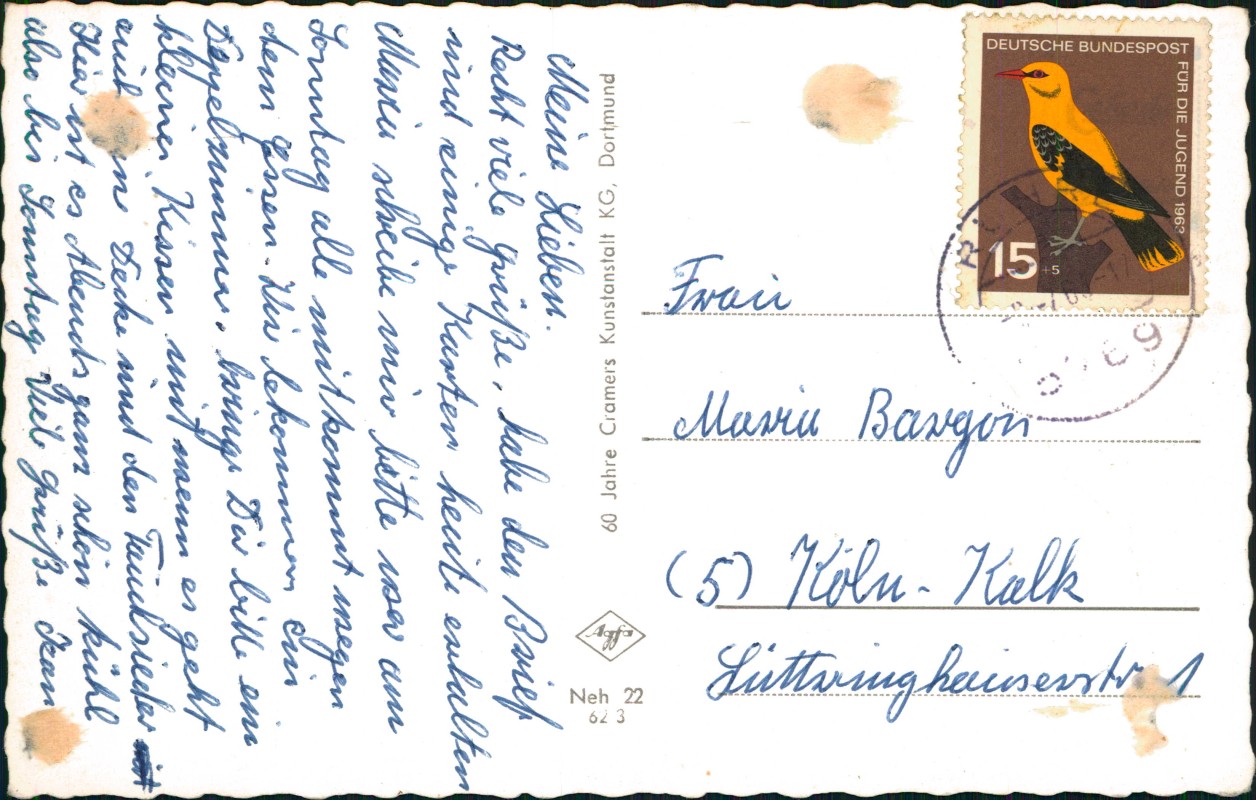 Meine Lieben.
Recht viele Grüße, habe den Brief
und einige Karten heute erhalten
Maria schreibe mir bitte wer am
Sonntag alle mitkommt wegen
dem essen. Wir bekommen ein
Doppelzimmer, bringe Dir bitte ein
kleines Kissen mit wenn es geht
auch eine Decke und den Tauchsieder
Hier ist es Abends ganz schön kühl
also bis Sonntag Viele grüße
60 Jahre Cramers Kunstanstalt KG, Dortmund
Neh 22
62 3
DEUTSCHE BUNDESPOST
FÜR DIE JUGEND 1963
15 +5
Frau
Maria Bargon
(5) Köln-Kalk
Lüttringhauserstr 1